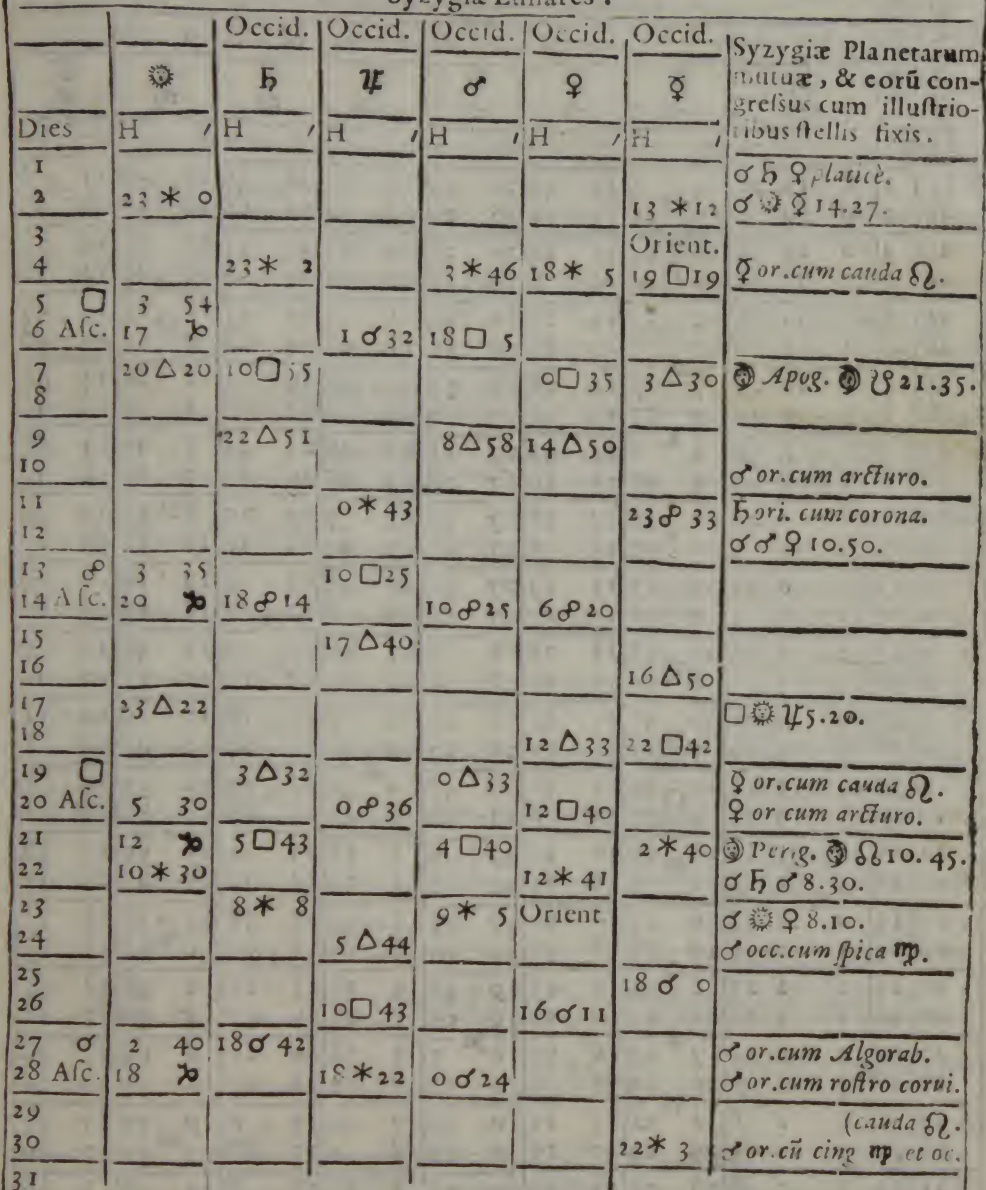 Syzygiæ Lunares.
Occid. Occid. Occid. Occid. Occid. Syzygiæ Planetarum
☼ ♄ ♃ ♂ ♀ ☿ mutuæ, & eorũ con-
greſsus cum illuſtrio-
Dies H ′ H ′ H ′ H ′ H ′ H ′ ribus ſtellis fixis.
1 ☌ ♄ ♀ platicè.
2 23 ⚹ 0 13 ⚹ 12 ☌ ☼ ☿ 14.27.
3 Orient.
4 23 ⚹ 2 3 ⚹ 46 18 ⚹ 5 19 □ 19 ☿ or.cum cauda ♌.
5 □ 3 54
6 Aſc. 17 ♑ 1 ☌ 32 18 □ 5
7 20 △ 20 10 □ 35 0 □ 35 3 △ 30 ☽ Apog. ☽ ☋ 21.35.
8
9 22 △ 51 8 △ 58 14 △ 50
10 ♂ or.cum arcturo.
11 0 ⚹ 43 23 ☍ 33 ♄ ori. cum corona.
12 ☌ ♂ ♀ 10.50.
13 ☍ 3 35 10 □ 25
14 Aſc. 20 ♑ 18 ☍ 14 10 ☍ 25 6 ☍ 20
15 17 △ 40
16 16 △ 50
17 23 △ 22 □ ☼ ♃ 5.20.
18 12 △ 33 22 □ 42
19 □ 3 △ 32 0 △ 33 ☿ or.cum cauda ♌.
20 Aſc. 5 30 0 ☍ 36 12 □ 40 ♀ or cum arcturo.
21 12 ♑ 5 □ 43 4 □ 40 2 ⚹ 40 ☽ Perig. ☽ ☊ 10. 45.
22 10 ⚹ 30 12 ⚹ 41 ☌ ♄ ♂ 8.30.
23 8 ⚹ 8 9 ⚹ 5 Orient ☌ ☼ ♀ 8.10.
24 5 △ 44 ♂ occ.cum ſpica ♍.
25 18 ☌ 0
26 10 □ 43 16 ☌ 11
27 ☌ 2 40 18 ☌ 42 ♂ or.cum Algorab.
28 Aſc. 18 ♑ 18 ⚹ 22 0 ☌ 24 ♂ or.cum roſtro corui.
29 (cauda ♌.
30 22 ⚹ 3 ♂ or.cũ cing ♍ et oc.
31